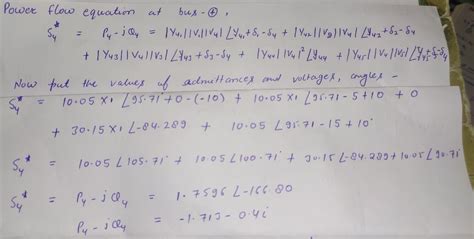 Power flow equation at bus-④,
S₄* = P₄-jQ₄ = |Y₄₁||V₁||V₄| ∠Y₄₁+δ₁-δ₄ + |Y₄₂||V₂||V₄| ∠Y₄₂+δ₂-δ₄
+ |Y₄₃||V₄||V₃| ∠Y₄₃+δ₃-δ₄ + |Y₄₄||V₄|² ∠Y₄₄ + |Y₄₅||V₄||V₅| ∠Y₄₅+δ₅-δ₄
Now put the values of admittances and voltages, angles -
S₄* = 10.05 ×1 ∠95.71+0-(-10) + 10.05 ×1 ∠95.71-5+10 + 0
+ 30.15×1 ∠-84.289 + 10.05 ∠95.71-15+10
S₄* = 10.05 ∠105.71 + 10.05 ∠100.71 + 30.15 ∠-84.289 + 10.05 ∠90.71
S₄* = P₄-jQ₄ = 1.7596 ∠-166.80
P₄-jQ₄ = -1.713-0.4i